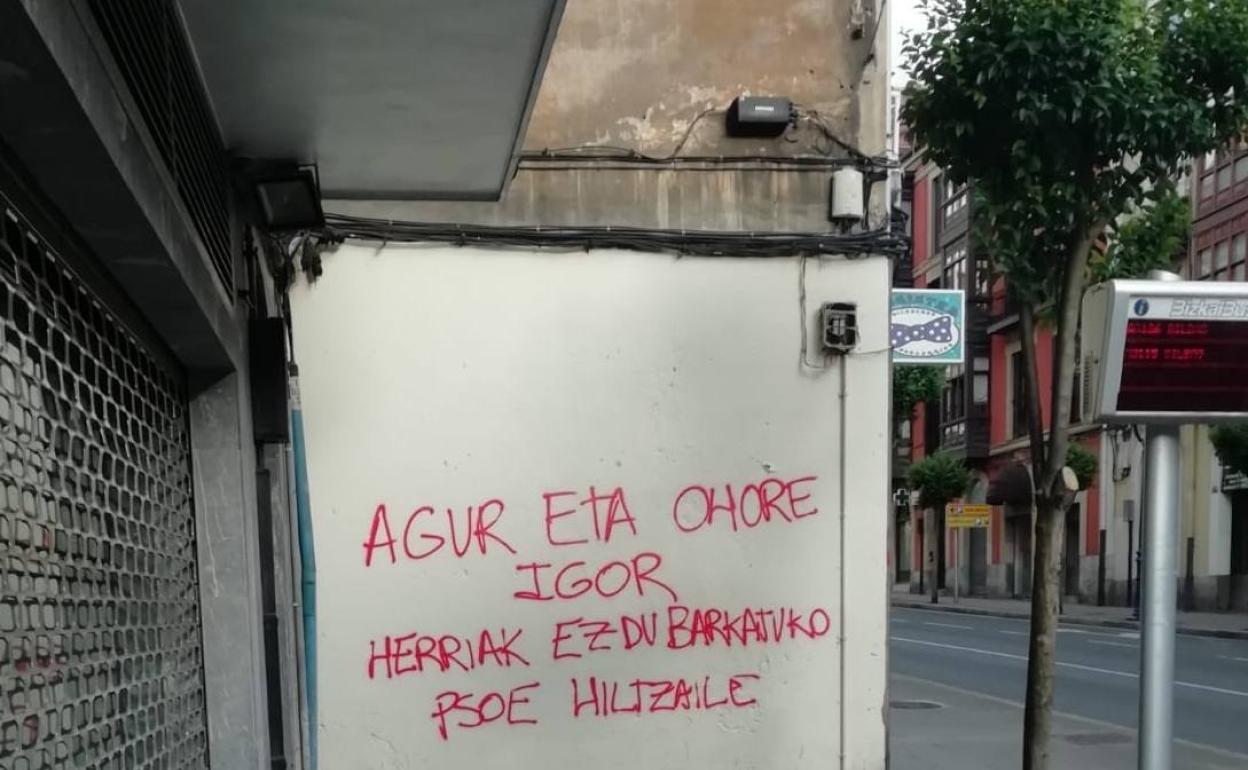 AGUR ETA OHORE
IGOR
HERRIAK EZ DU BARKATUKO
PSOE HILTZAILE
i BizkaiBu